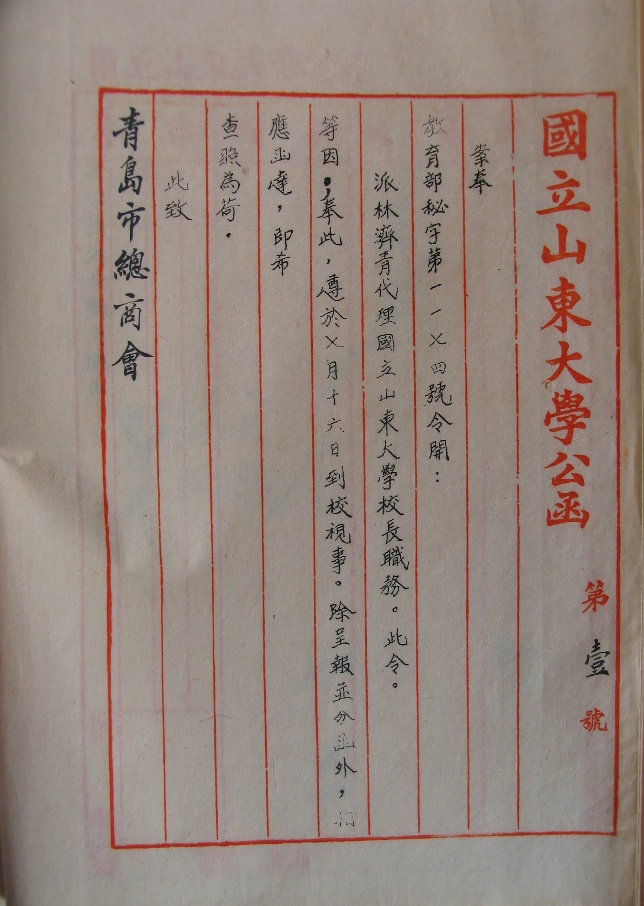 國立山東大學公函 第壹號
案奉
教育部秘字第一一七四號令開：
派林濟青代理國立山東大學校長職務。此令。
等因，奉此，遵於七月十六日到校視事。除呈報並分函外，相
應函達，即希
查照為荷。
此致
青島市總商會